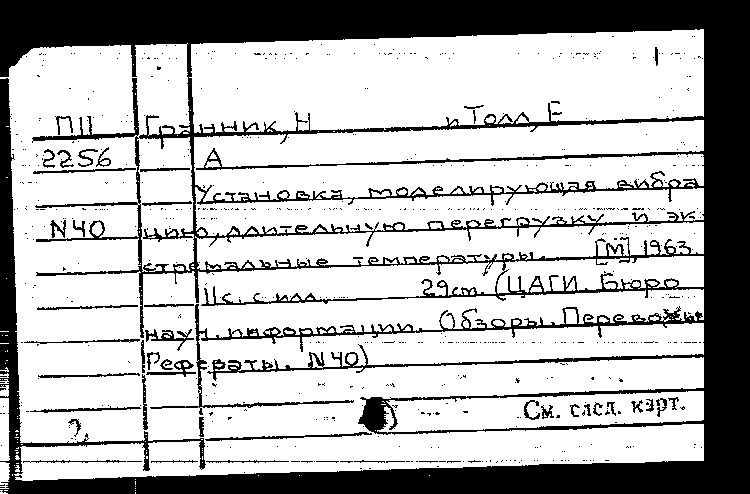 1
П11 Гранник, Н и Толл, Е
2256 А
Установка, моделирующая вибра
N40 цию, длительную перегрузку и эк-
стремальные температуры. [М], 1963.
11с. с илл. 29см. (ЦАГИ. Бюро
науч. информации. Обзоры. Переводы
Рефераты. N40)
См. след. карт.
2,